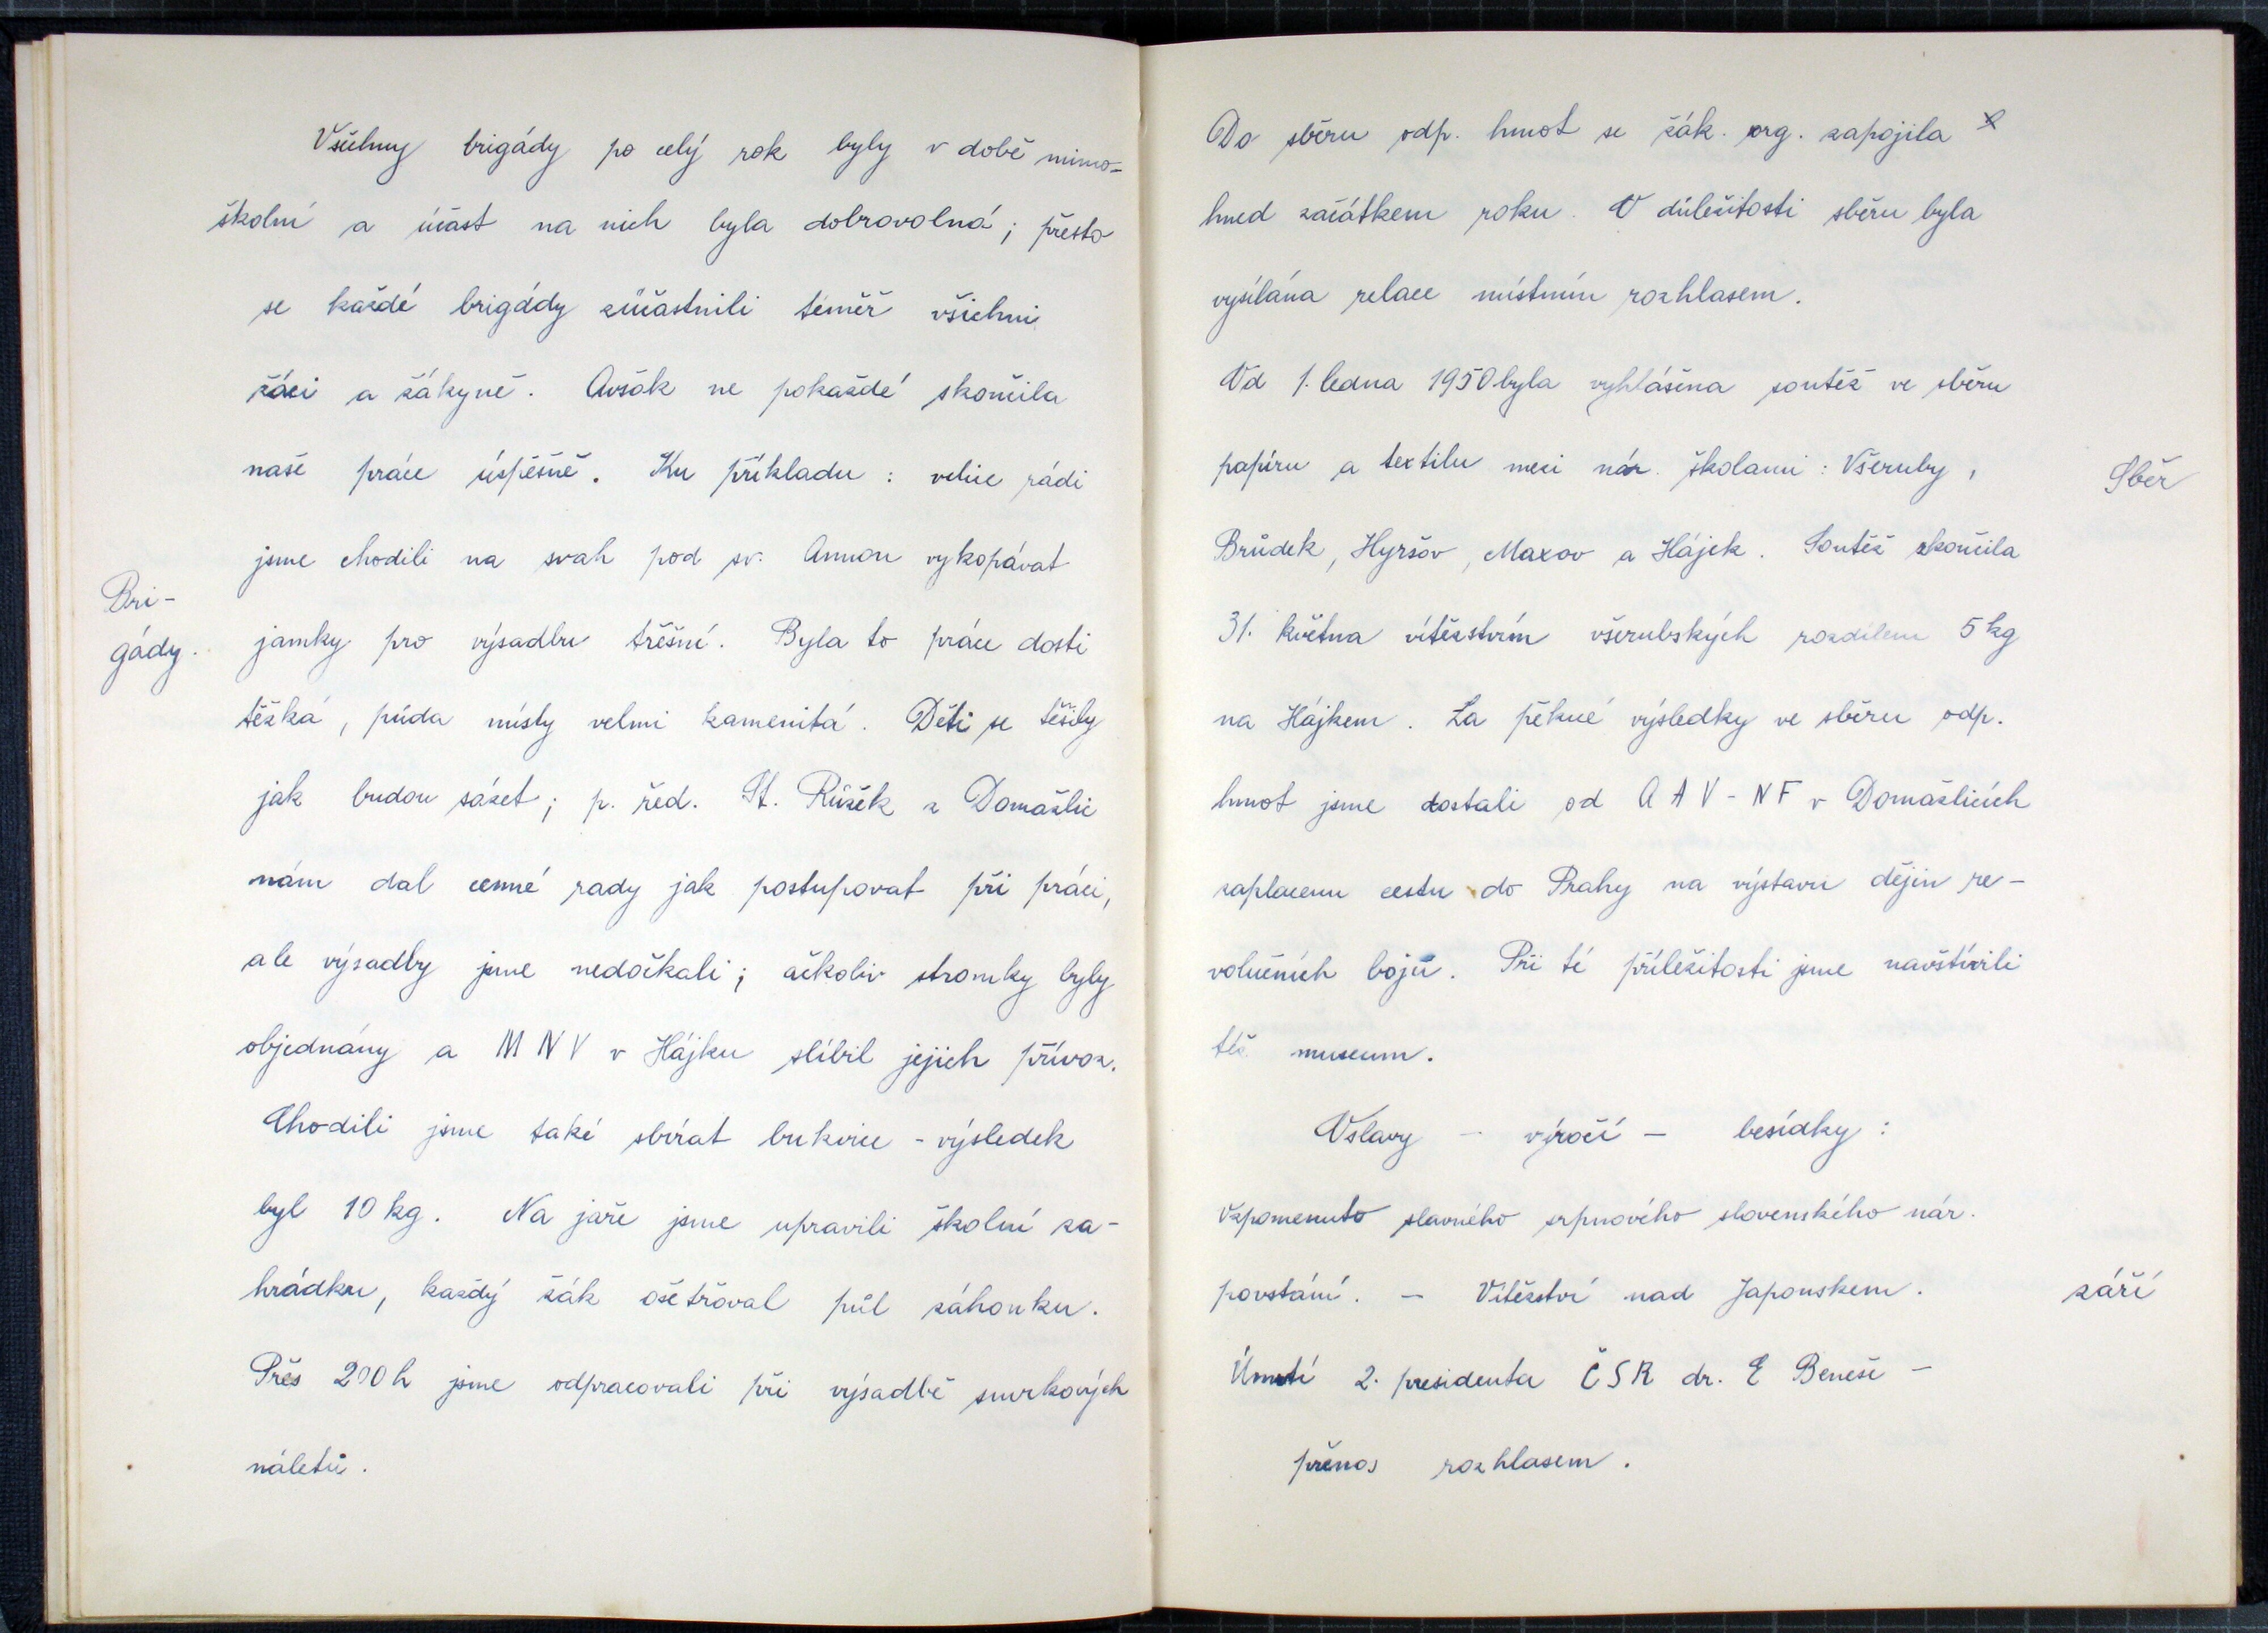 Všechny brigády po celý rok byly v době mimo-
školní a účast na nich byla dobrovolná; přesto
se každé brigády zúčastnili téměř všichni
žáci a žákyně. Avšak ne pokaždé skončila
naše práce úspěšně. Ku příkladu: velice rádi
jsme chodili na svah pod sv. Annou vykopávat
Bri-
gády.
jamky pro výsadbu třešní. Byla to práce dosti
těžká, půda místy velmi kamenitá. Děti se těšily
jak budou sázet; p. řed. St. Růžek z Domažlic
nám dal cenné rady jak postupovat při práci,
ale výsadby jsme nedočkali; ačkoliv stromky byly
objednány a MNV v Hájku slíbil jejich přívoz.
Chodili jsme také sbírat bukvice - výsledek
byl 10 kg. Na jaře jsme upravili školní za-
hrádku, každý žák ošetřoval půl záhonku.
Přes 200 h jsme odpracovali při výsadbě smrkových
náletů.
Do sběru odp. hmot se žák. org. zapojila
hned začátkem roku. O důležitosti sběru byla
vysílána relace místním rozhlasem.
Od 1. ledna 1950 byla vyhlášena soutěž ve sběru
papíru a textilu mezi nár. školami: Všeruby,
Sběr
Brůdek, Hyršov, Maxov a Hájek. Soutěž skončila
31. května vítězstvím všerubských rozdílem 5 kg
na Hájkem. Za pěkné výsledky ve sběru odp.
hmot jsme dostali od AAV - NF v Domažlicích
zaplacenu cestu do Prahy na výstavu dějin re-
volučních bojů. Při té příležitosti jsme navštívili
též museum.
Oslavy - výročí - besídky:
Vzpomenuto slavného srpnového slovenského nár.
povstání. - Vítězství nad Japonskem.
září
Úmrtí 2. presidenta ČSR dr. E Beneše -
přenos rozhlasem.